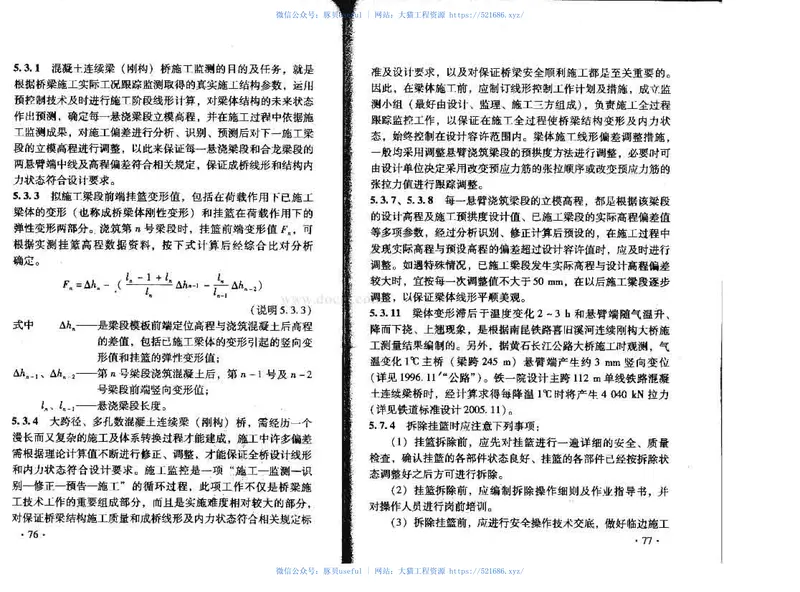 微信公众号：豚贝useful | 网站：大猫工程资源 https://521686.xyz/
5.3.1 混凝土连续梁（刚构）桥施工监测的目的及任务，就是
根据桥梁施工实际工况跟踪监测取得的真实施工结构参数，运用
预控制技术及时进行施工阶段线形计算，对梁体结构的未来状态
作出预测，确定每一悬浇梁段立模高程，并在施工过程中依据施
工监测成果，对施工偏差进行分析、识别、预测后对下一施工梁
段的立模高程进行调整，以此来保证每一悬浇梁段和合龙梁段的
两悬臂端中线及高程偏差符合相关规定，保证成桥线形和结构内
力状态符合设计要求。
5.3.3 拟施工梁段前端挂篮变形值，包括在荷载作用下已施工
梁体的变形（也称成桥梁体刚性变形）和挂篮在荷载作用下的
弹性变形两部分。浇筑第 n 号梁段时，挂篮前端变形值 Fₙ，可
根据实测挂篮高程数据资料，按下式计算后经综合比对分析
确定。
Fₙ = Δhₙ - ( (lₙ - 1 + lₙ)/lₙ Δhₙ₋₁ - lₙ/lₙ₋₁ Δhₙ₋₂ )
(说明 5.3.3)
式中 Δhₙ——是梁段模板前端定位高程与浇筑混凝土后高程
的差值，包括已施工梁体的变形引起的竖向变
形值和挂篮的弹性变形值；
Δhₙ₋₁、Δhₙ₋₂——第 n 号梁段浇筑混凝土后，第 n－1 号及 n－2
号梁段前端竖向变形值；
lₙ、lₙ₋₁——悬浇梁段长度。
5.3.4 大跨径、多孔数混凝土连续梁（刚构）桥，需经历一个
漫长而又复杂的施工及体系转换过程才能建成，施工中许多偏差
需根据理论计算值不断进行修正、调整，才能保证全桥设计线形
和内力状态符合设计要求。施工监控是一项“施工—监测—识
别—修正—预告—施工”的循环过程，此项工作不仅是桥梁施
工技术工作的重要组成部分，而且是实施难度相对较大的部分，
对保证桥梁结构施工质量和成桥线形及内力状态符合相关规定标
·76·
准及设计要求，以及对保证桥梁安全顺利施工都是至关重要的。
因此，在梁体施工前，应制订线形控制工作计划及措施，成立监
测小组（最好由设计、监理、施工三方组成），负责施工全过程
跟踪监控工作，以保证在施工全过程使桥梁结构变形及内力状
态，始终控制在设计容许范围内。梁体施工线形偏差调整措施，
一般均采用调整悬臂浇筑梁段的预拱度方法进行调整，必要时可
由设计单位决定采用改变预应力筋的张拉顺序或改变预应力筋的
张拉力值进行跟踪调整。
5.3.7、5.3.8 每一悬臂浇筑梁段的立模高程，都是根据该梁段
的设计高程及施工预拱度设计值、已施工梁段的实际高程偏差值
等多项参数，经过分析识别、修正计算后预设的，在施工过程中
发现实际高程与预设高程的偏差超过设计容许值时，应及时进行
调整。如遇特殊情况，已施工梁段发生实际高程与设计高程偏差
较大时，宜按每一次调整值不大于 50 mm，在以后施工梁段逐步
调整，以保证梁体线形平顺美观。
5.3.11 梁体变形滞后于温度变化 2～3 h 和悬臂端随气温升、
降而下挠、上翘现象，是根据南昆铁路喜旧溪河连续刚构大桥施
工测量结果编制的。另外，据黄石长江公路大桥施工时观测，气
温变化 1℃主桥（梁跨 245 m）悬臂端产生约 3 mm 竖向变位
（详见 1996.11“公路”）。铁一院设计主跨 112 m 单线铁路混凝
土连续梁桥时，经计算求得每降温 1℃时将产生 4 040 kN 拉力
（详见铁道标准设计 2005.11）。
5.7.4 拆除挂篮时应注意下列事项：
（1）挂篮拆除前，应先对挂篮进行一遍详细的安全、质量
检查，确认挂篮的各部件状态良好、挂篮的各部件已经按拆除状
态调整好之后方可进行拆除。
（2）挂篮拆除前，应编制拆除操作细则及作业指导书，并
对操作人员进行岗前培训。
（3）拆除挂篮前，应进行安全操作技术交底，做好临边施工
·77·
微信公众号：豚贝useful | 网站：大猫工程资源 https://521686.xyz/